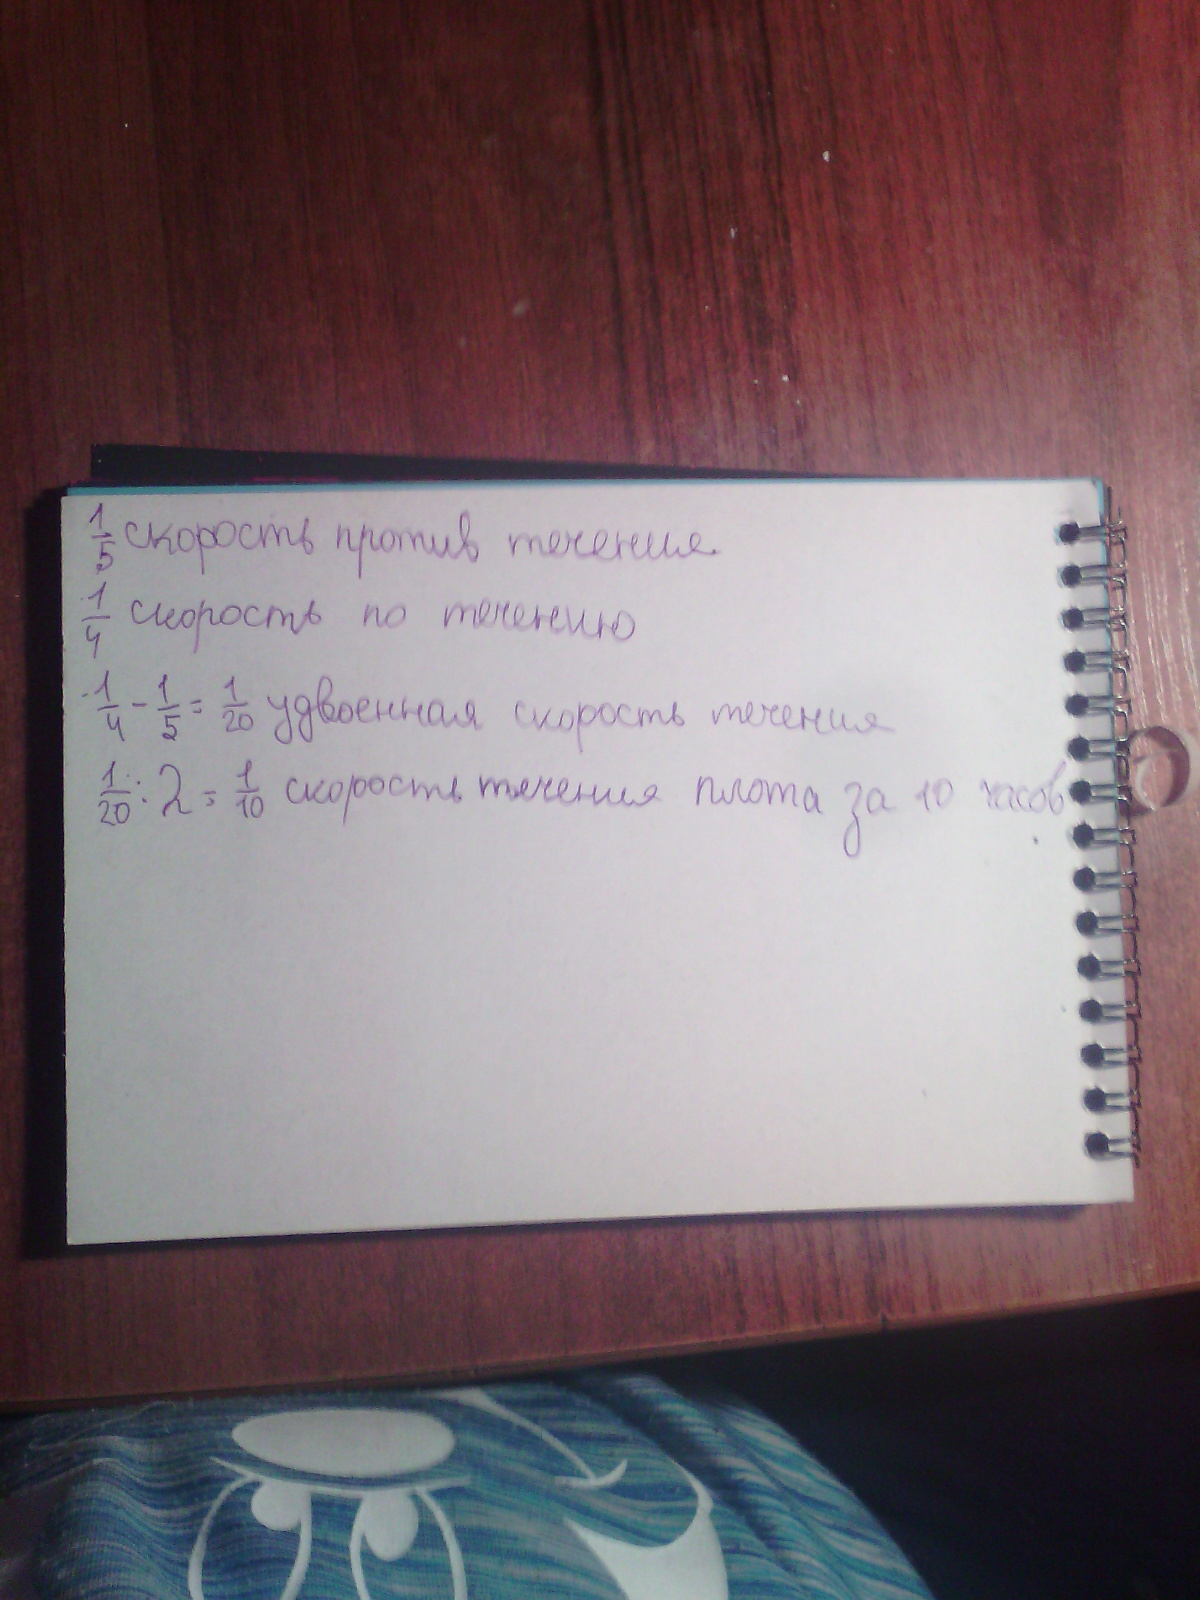 1/5 скорость против течения.
1/4 скорость по течению
1/4 - 1/5 = 1/20 удвоенная скорость течения
1/20 : 2 = 1/10 скорость течения плота за 10 часов